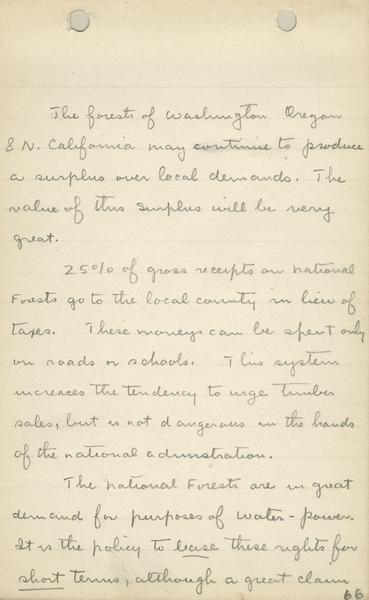 The forests of Washington Oregon
& N. California may continue to produce
a surplus over local demands. The
value of this surplus will be very
great.
25% of gross receipts on national
Forests go to the local county in lieu of
taxes. These moneys can be spent only
on roads or schools. This system
increaces the tendency to urge timber
sales, but is not dangerous in the hands
of the national adminstration.
The national Forests are in great
demand for purposes of water-power.
It is the policy to lease these rights for
short terms, although a great claim
66